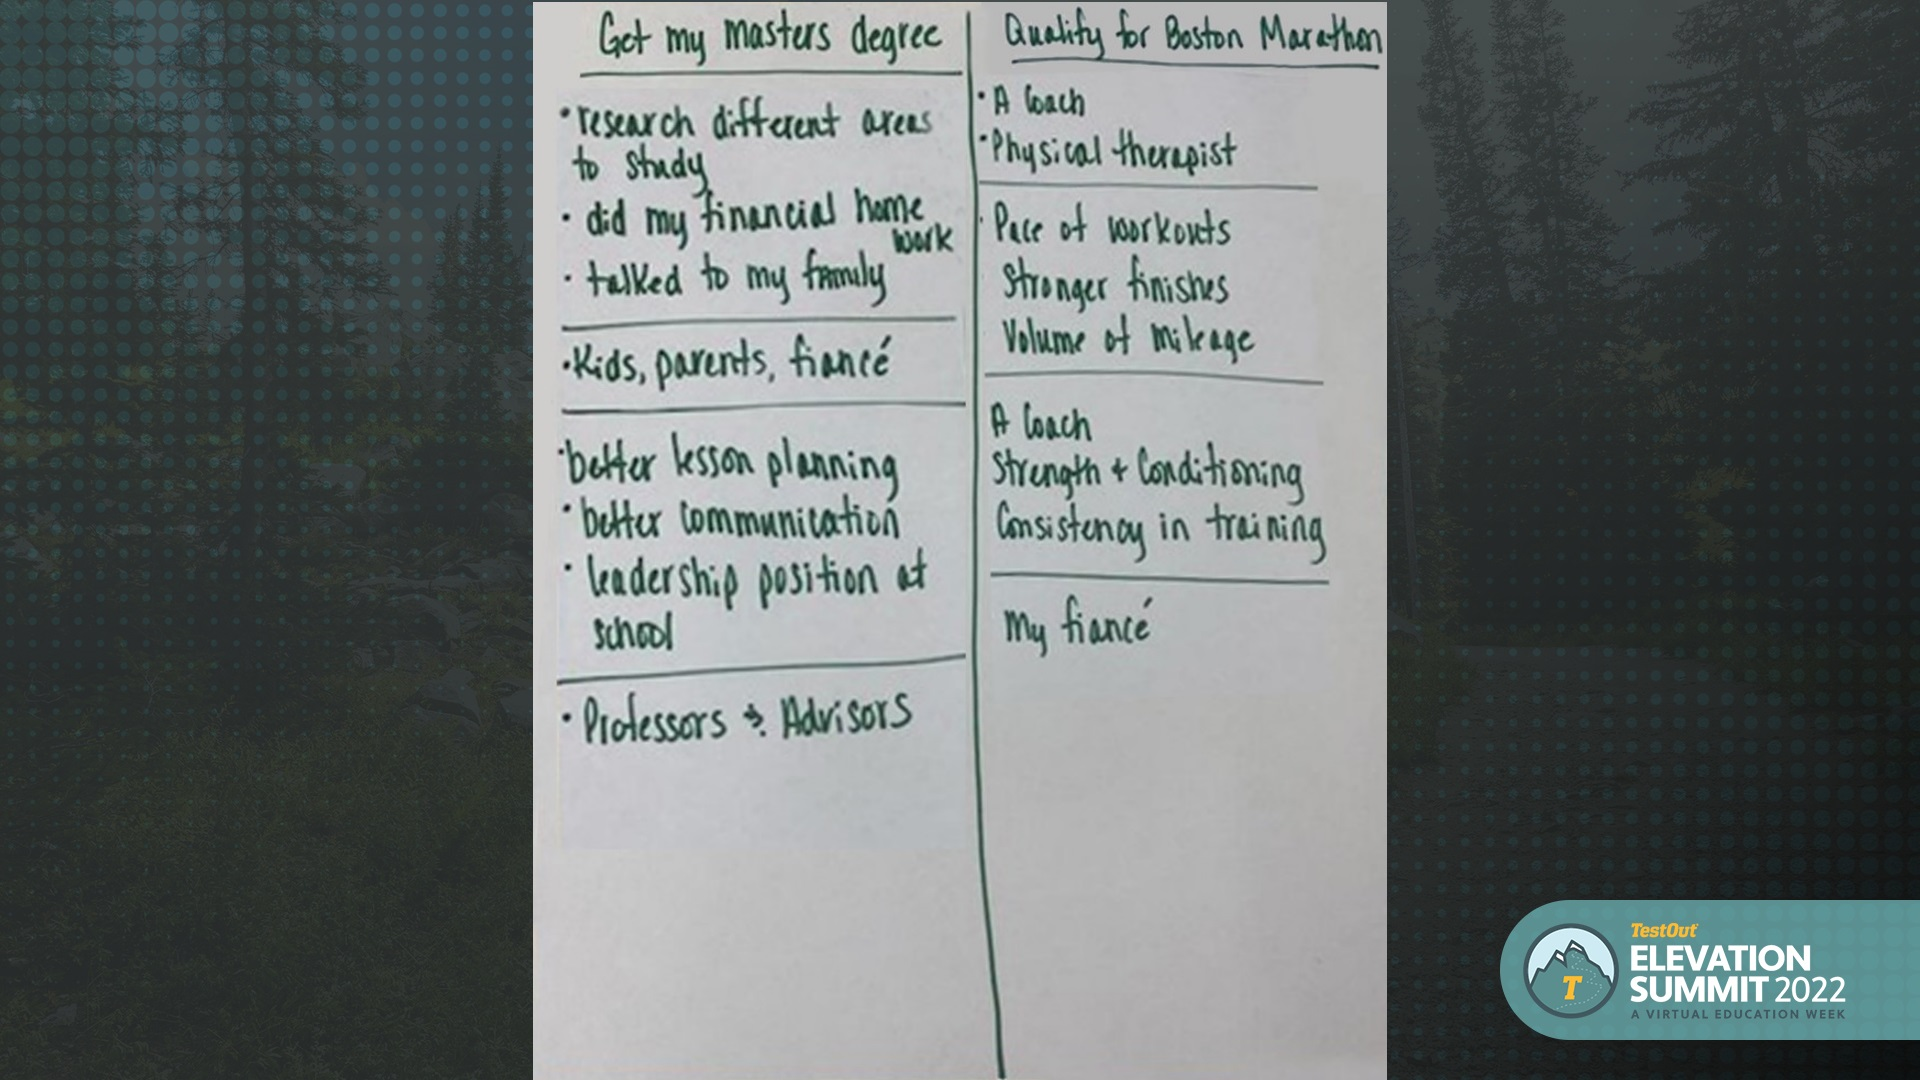 Get my masters degree
• research different areas
to study
• did my financial home
work
• talked to my family
• Kids, parents, fiancé
• better lesson planning
• better communication
• leadership position at
school
• Professors & Advisors
Qualify for Boston Marathon
• A Coach
• Physical therapist
• Pace of workouts
Stronger finishes
Volume of mileage
A Coach
Strength + Conditioning
Consistency in training
My fiancé
TestOut
ELEVATION
SUMMIT 2022
A VIRTUAL EDUCATION WEEK
T